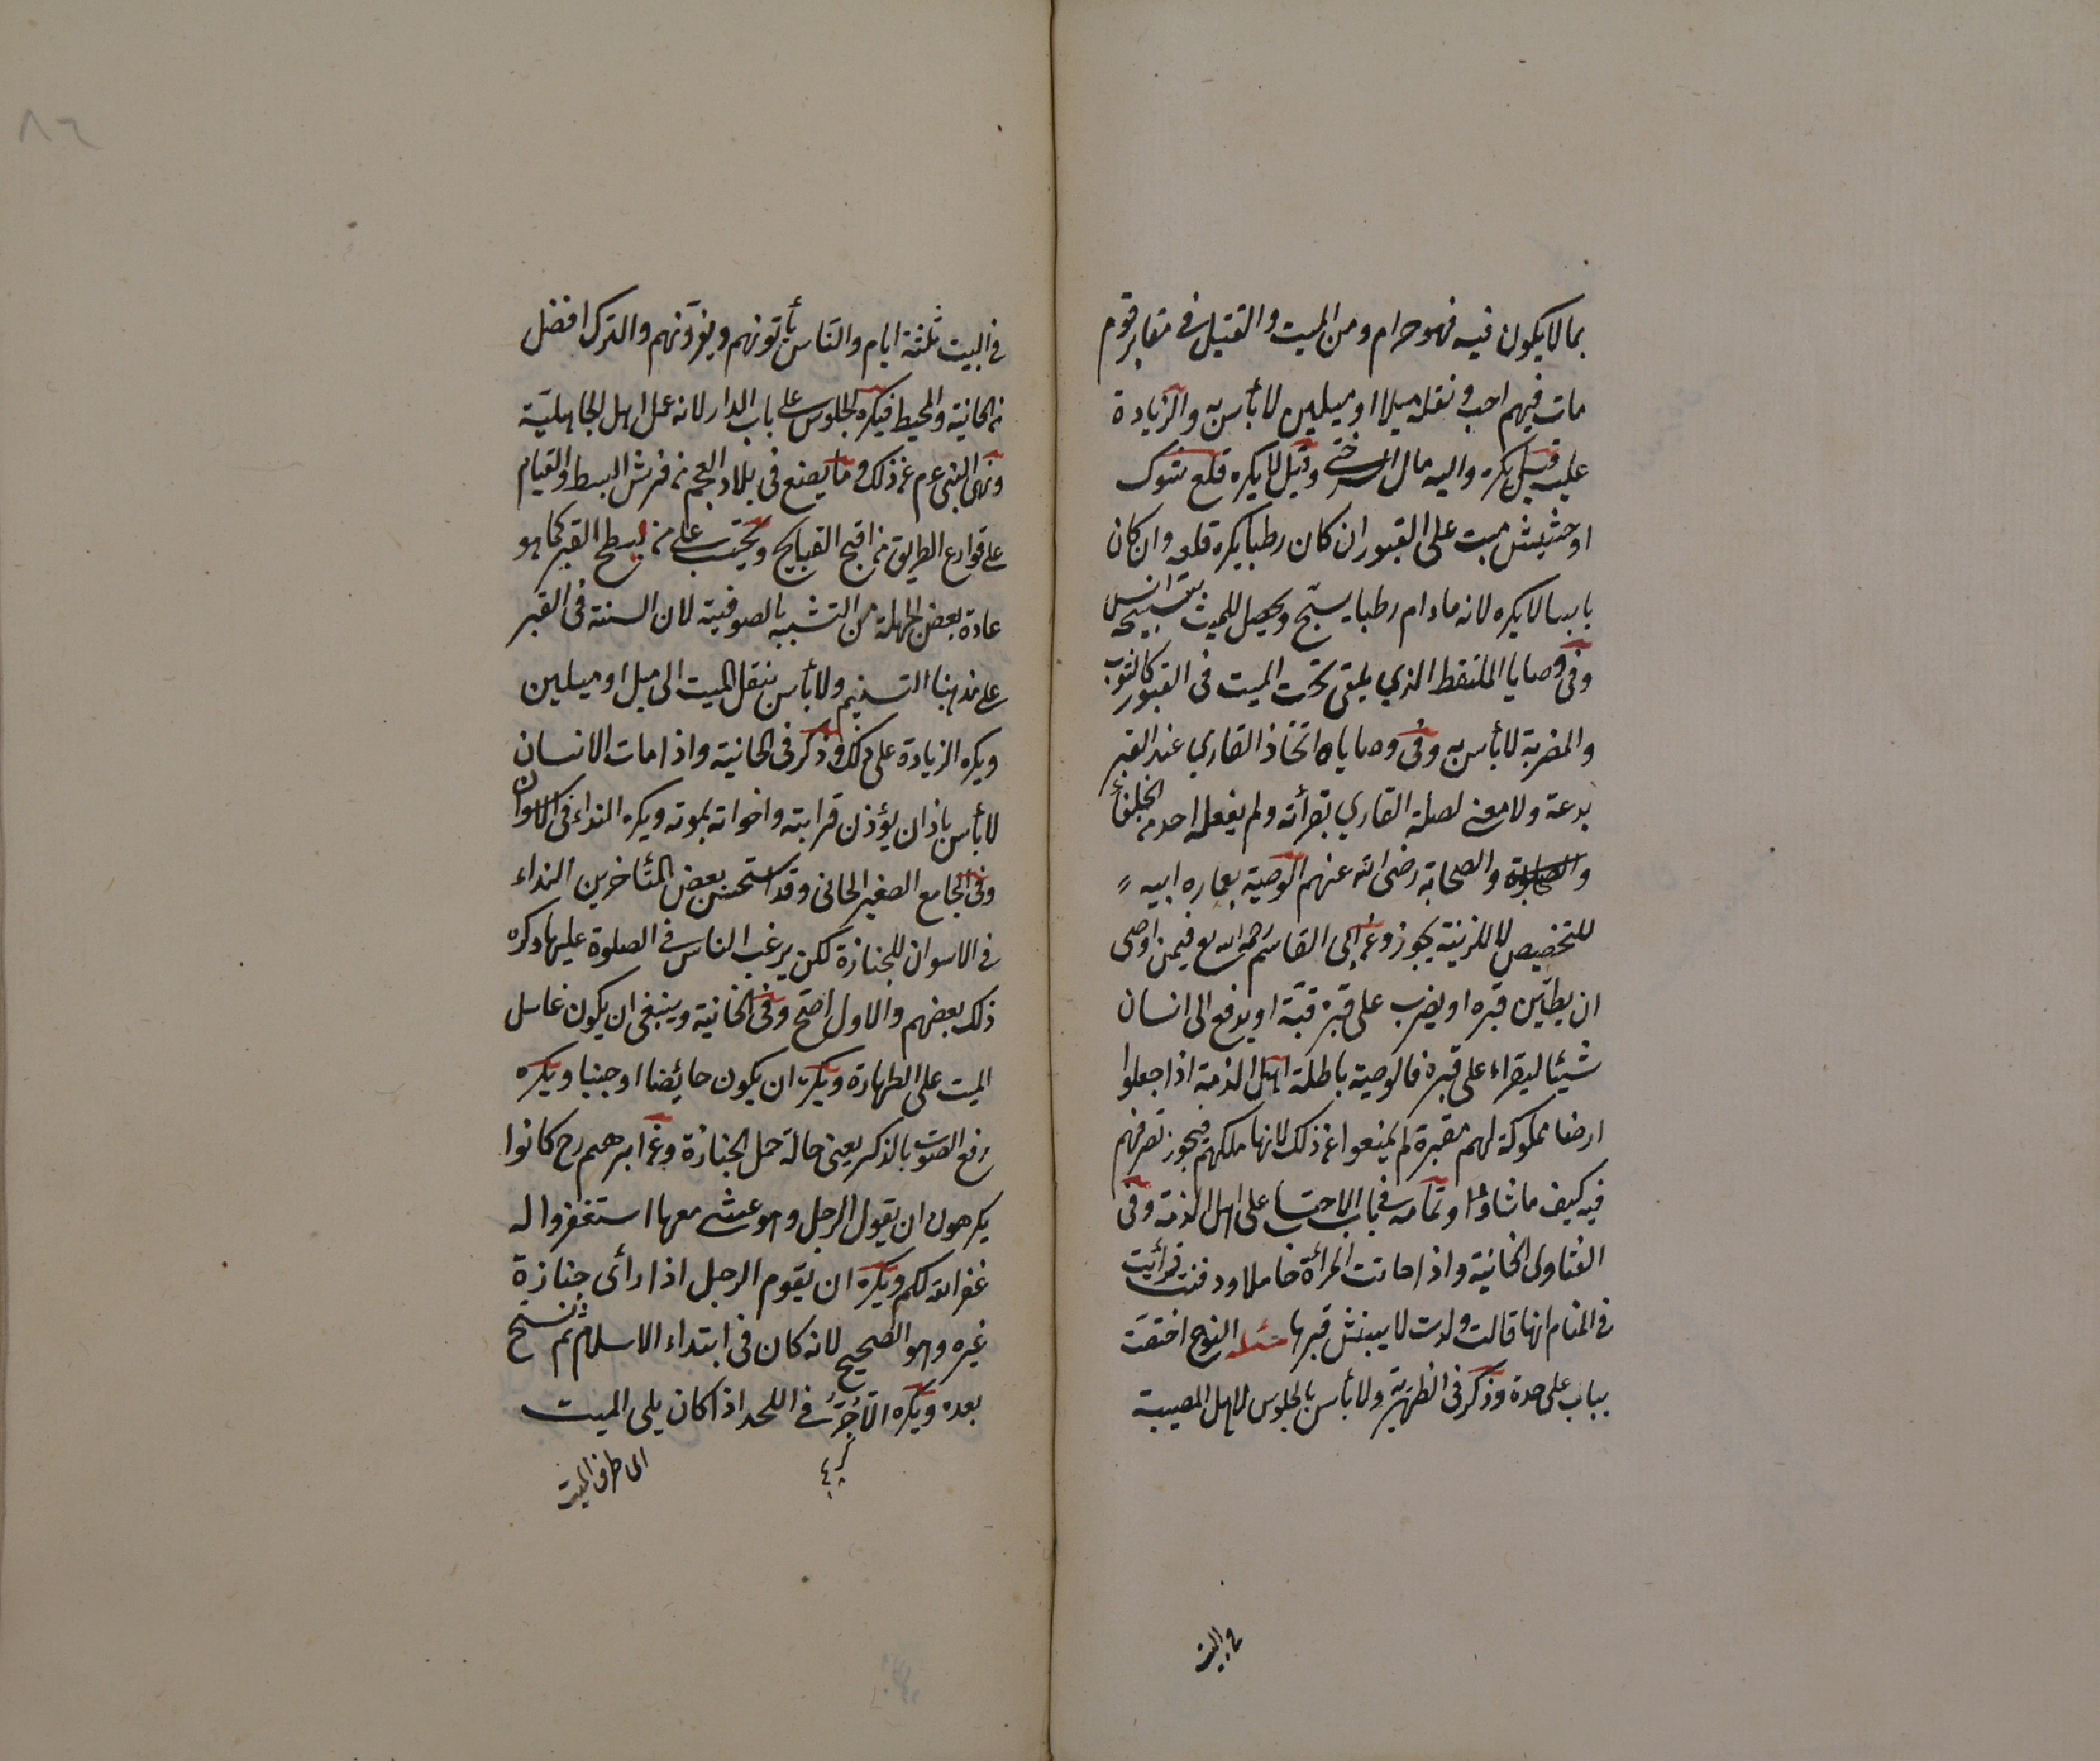 بما لا يكون فيه فهو حرام ومن الميت والقتيل في مقابر قوم
مات فيهم احب ونقله ميلا او ميلين لا بأس به والزيادة
عليه قيل يكره واليه مال السرخسي وقيل لا يكره قلع شوك
او حشيش نبت على القبور ان كان رطبا يكره قلعه وان كان
يابسا لا يكره لانه ما دام رطبا يسبّح ويحصل للميت بتسبيحه انس
وفى وصايا الملتقط الذي يلقى تحت الميت فى القبور كالثوب
والمضربة لا بأس به وفى وصاياه اتخاذ القاري عند القبر
بدعة ولا معنى لصلة القاري بقرأته ولم يفعله احد من الخلفاء
والصحابة رضى الله عنهم الوصية بعماره ابيه
للتحصيص لا للزينة يجوز وعن ابى القاسم رحمه الله فيمن اوصى
ان يطيّن قبره او يضرب على قبره قبّة او يدفع الى انسان
شيئا ليقراء على قبره فالوصية باطلة اهل الذمة اذا جعلوا
ارضا مملوكة لهم مقبرة لم يمنعوا عن ذلك لانها ملكهم فيجوز تصرفهم
فيه كيف ما شاؤا وتمامه في باب الاحتساب على اهل الذمة وفى
الفتاوى الخانية واذا ماتت المرأة حاملا ودفنت فرأيت
في المنام انها قالت ولدت لا ينبش قبرها مسئله النوح اختصّت
بباب على حدة وذكر فى الظهيرية ولا بأس بالجلوس لاهل المصيبة
في البيت
في البيت ثلثة ايام والنّاس يأتونهم ويعزّونهم والترك افضل
من الخانية والمحيط فيكره الجلوس على باب الدار لانه عمل اهل الجاهلية
ونهى النبى عم عن ذلك وما يصنع فى بلاد العجم من فرش البسط والقيام
على قوارع الطريق من اقبح القبايح ويحتسب على من يسطح القبر كما هو
عادة بعض الجهلة من التشبيه بالصوفية لان السنة فى القبر
على مذهبنا التسنيم ولا بأس بنقل الميت الى ميل او ميلين
ويكره الزيادة على ذلك وذكر فى الخانية واذا مات الانسان
لا بأس بأن يؤذن قرابته واخواته بموته ويكره النداء فى الاسواق
وفى الجامع الصغير الخانى وقد استحسن بعض المتأخرين النداء
في الاسواق للجنازة لكن يرغب الناس في الصلوة عليها وكره
ذلك بعضهم والاول اصح وفى الخانية وينبغى ان يكون غاسل
الميت على الطهارة ويكره ان يكون حائضا او جنبا ويكره
رفع الصوت بالذكر يعنى حالة حمل الجنازة وعن ابرهيم رح كانوا
يكرهون ان يقول الرجل وهو يمشى معها استغفروا له
غفر الله لكم ويكره ان يقوم الرجل اذا رأى جنازة
غيره وهو الصحيح لانه كان فى ابتداء الاسلام ثم نسخ
بعده ويكره الآجر في اللحد اذا كان يلى الميت
الى طرف الميت
٨٦